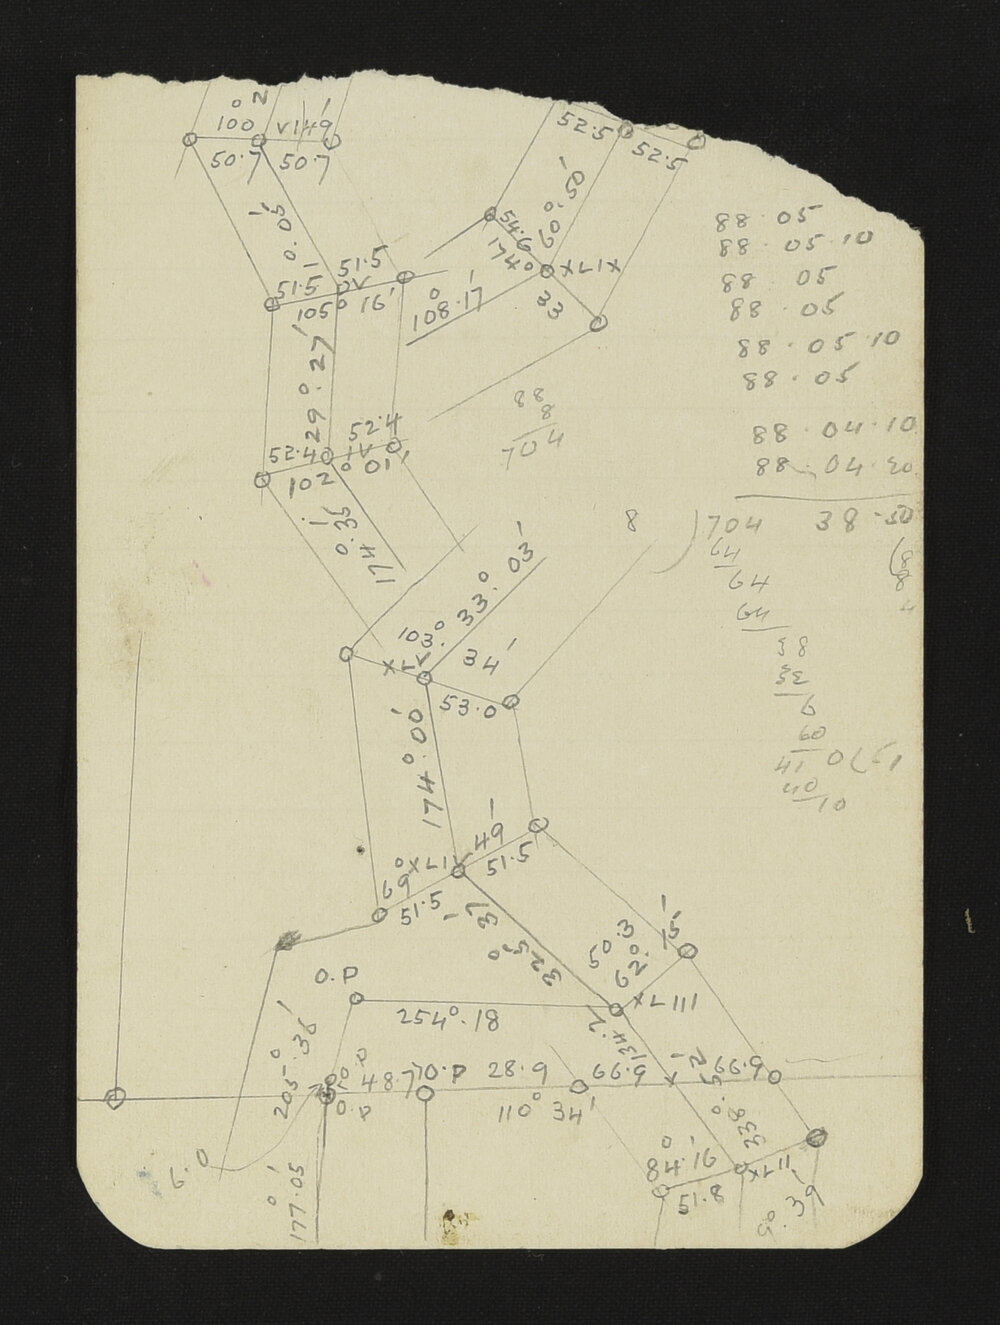 100°
V149'
50.7
50.7
0.05'
51.5
51.5
V
105° 16'
29°.27'
52.4
52.4
IV
102° 01'
174
0.36'
52.5
52.5
60°.50'
54.6
174°
XLIX
33
108°.17'
88
8
704
88 05
88 . 05 . 10
88 05
88 . 05
88 . 05 . 10
88 . 05
88 . 04 . 10
88 . 04 . 30
8 ) 704 38 . 50
64
64
64
38
32
6
60
41
40
10
103°
34'
33° 03'
53.0
174°.00'
69° 49'
51.5
51.5
325° 37'
50.3
62° 15'
XLIII
134.2
0.P
254°.18
205°.36'
48.7
0.P
0.P
28.9
66.9
66.9
110° 34'
338°.52'
6.0
177°.05'
84°.16'
51.8
XLII
9°.39'